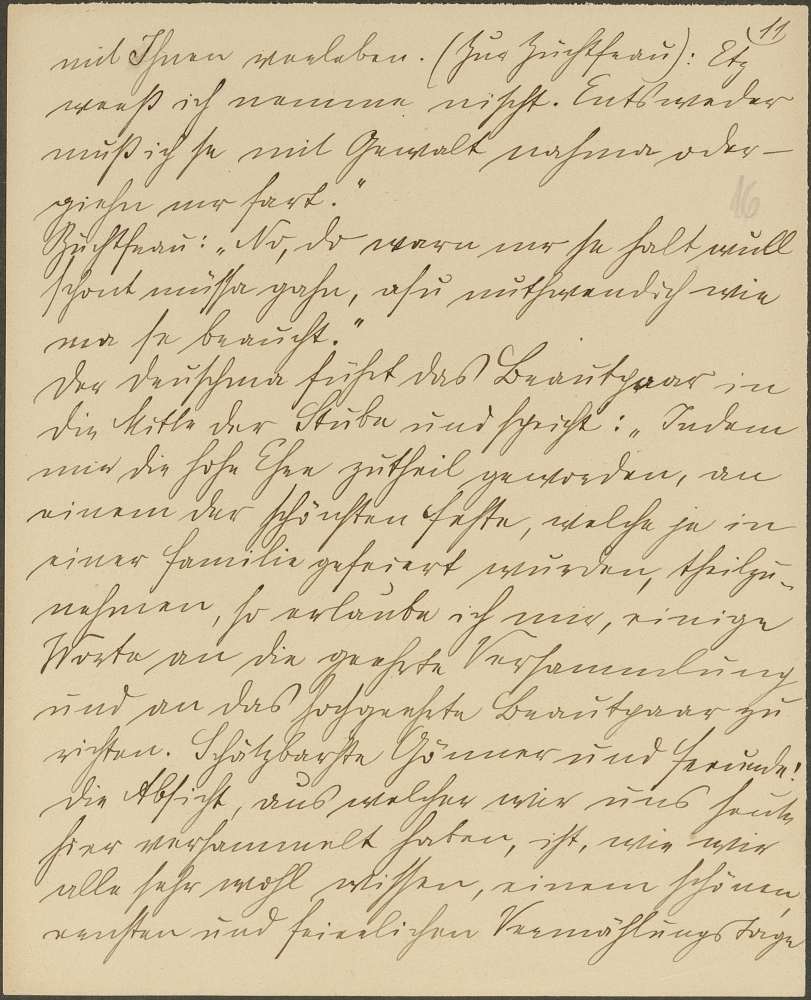 11
mit Ihnen verleben. (Zur Zuchtfrau): Etz
weeß ich nemme nischt. Entsweder
muß ich se mit Gewalt nahma oder —
giehn mr fort."
16
Zuchtfrau: „No, do warn mr se halt wull
schont müssa gahn, asu nuthwendich wie
ma se braucht."
Der Druschma führt das Brautpaar in
die Mitte der Stube und spricht: „Indem
mir die hohe Ehre zutheil geworden, an
einem der schönsten Feste, welche je in
einer Familie gefeiert wurden, theilzu-
nehmen, so erlaube ich mir, einige
Worte an die geehrte Versammlung
und an das hochgeehrte Brautpaar zu
richten. Schätzbarste Gönner und Freunde!
Die Absicht, aus welcher wir uns heute
hier versammelt haben, ist, wie wir
alle sehr wohl wissen, einem schönen,
ernsten und feierlichen Vermählungstage